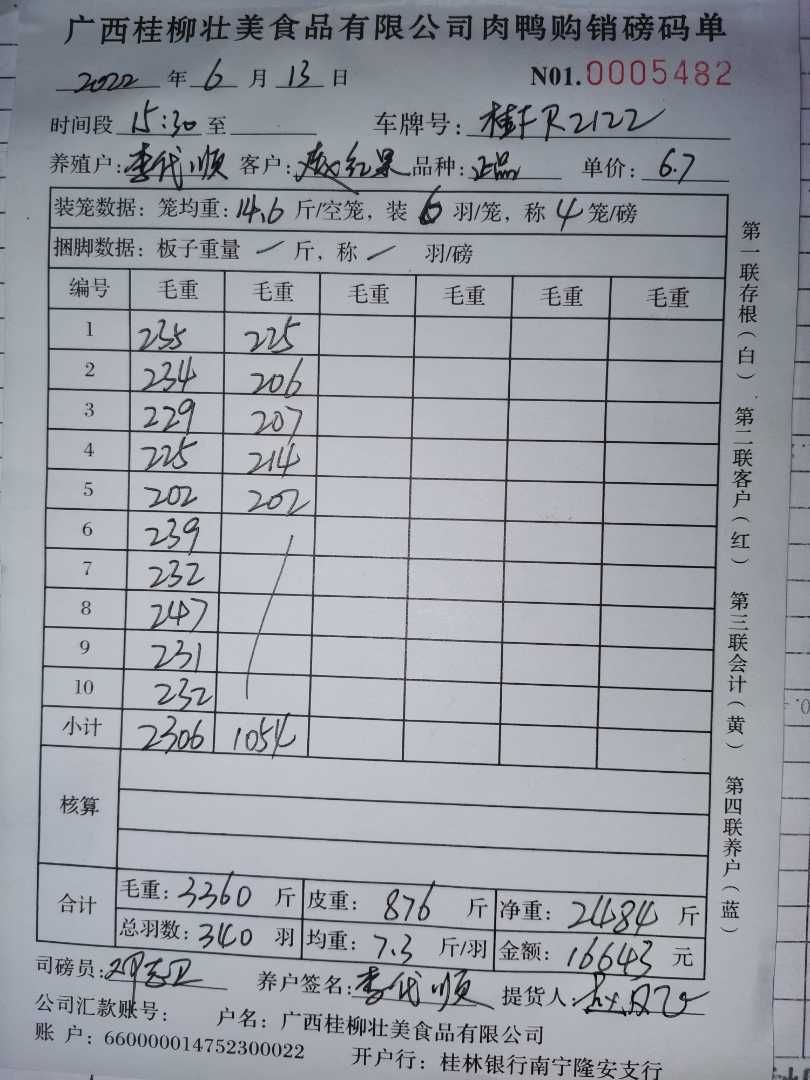 广西桂柳壮美食品有限公司肉鸭购销磅码单
2022 年 6 月 13 日 N01.0005482
时间段 15:30 至 车牌号: 桂FR2122
养殖户: 李代顺 客户: 红果 品种: 正品 单价: 6.7
装笼数据: 笼均重: 14.6 斤/空笼, 装 6 羽/笼, 称 4 笼/磅
捆脚数据: 板子重量 一 斤, 称 一 羽/磅
编号 毛重 毛重 毛重 毛重 毛重 毛重
1 235 225
2 234 206
3 229 207
4 225 214
5 202 202
6 239
7 232
8 247
9 231
10 232
小计 2306 1054
核算
合计 毛重: 3360 斤 皮重: 876 斤 净重: 2484 斤
总羽数: 340 羽 均重: 7.3 斤/羽 金额: 16643 元
司磅员: 养户签名: 李代顺 提货人:
公司汇款账号: 户名: 广西桂柳壮美食品有限公司
账 户: 660000014752300022 开户行: 桂林银行南宁隆安支行
第一联存根(白) 第二联客户(红) 第三联会计(黄) 第四联养户(蓝)